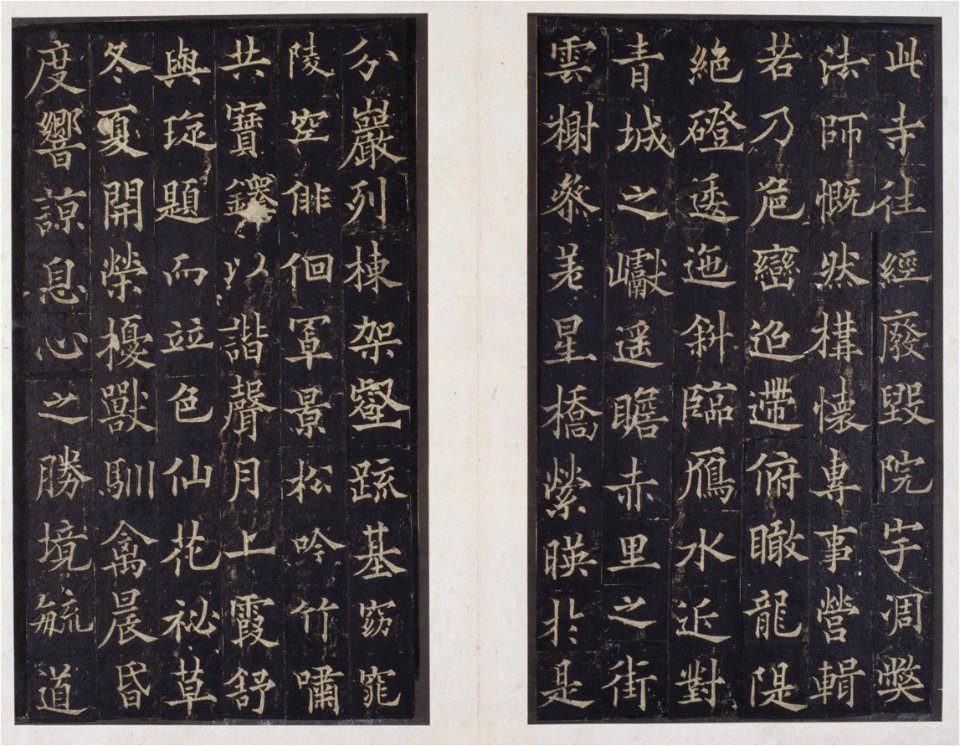 此寺往經廢毀院宇凋弊
法師慨然構懷專事營輯
若乃危巒迢遰俯瞰龍隄
絶磴逶迤斜臨鴈水近對
青城之巘遥瞻赤里之街
雲榭參差星橋縈暎於是
分巖列棟架壑疏基窈窕
陵空俳佪罩景松吟竹嘯
共寶鐸以諧聲月上霞舒
與琁題而竝色仙花祕草
冬夏開榮擾獸馴禽晨昏
度響諒息心之勝境毓道